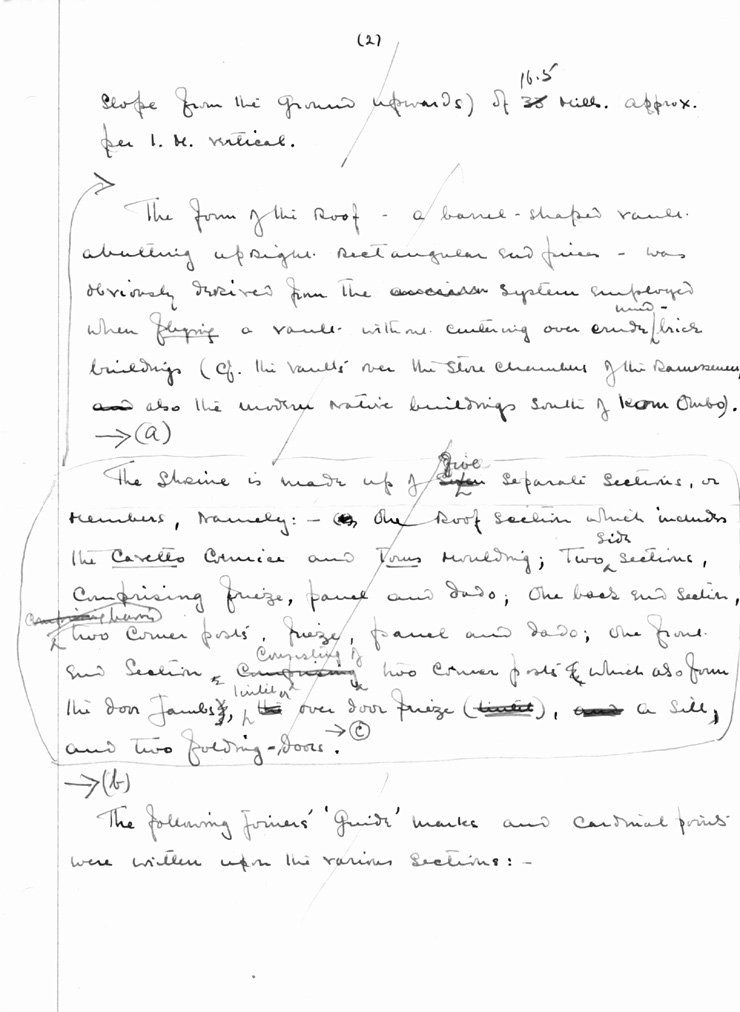 (2)
16.5
slope from the ground upwards) of 38 Mills. approx.
per 1. M. vertical.
The form of the Roof - a barrel-shaped vault
abutting upright rectangular end pieces - was
obviously derived from the ancient system employed
mud-
when a vault without centering over crude brick
buildings (cf. the vaults over the Store Chambers of the Ramesseum
and also the modern native buildings South of Kom Ombo).
→(a)
five
The Shrine is made up of separate sections, or
members, namely: - One Roof Section which includes
side
the Cavetto Cornice and Torus moulding; Two sections,
comprising frieze, panel and dado; One back end section,
comprising having
two corner posts, frieze, panel and dado; One front
Consisting of
end section, comprising two corner posts which also form
lintel or
the door jambs, the over door frieze (lintel), and a sill,
and two folding-doors. →(c)
→(b)
The following joiners' 'Guide' marks and cardinal points
were written upon the various sections: -